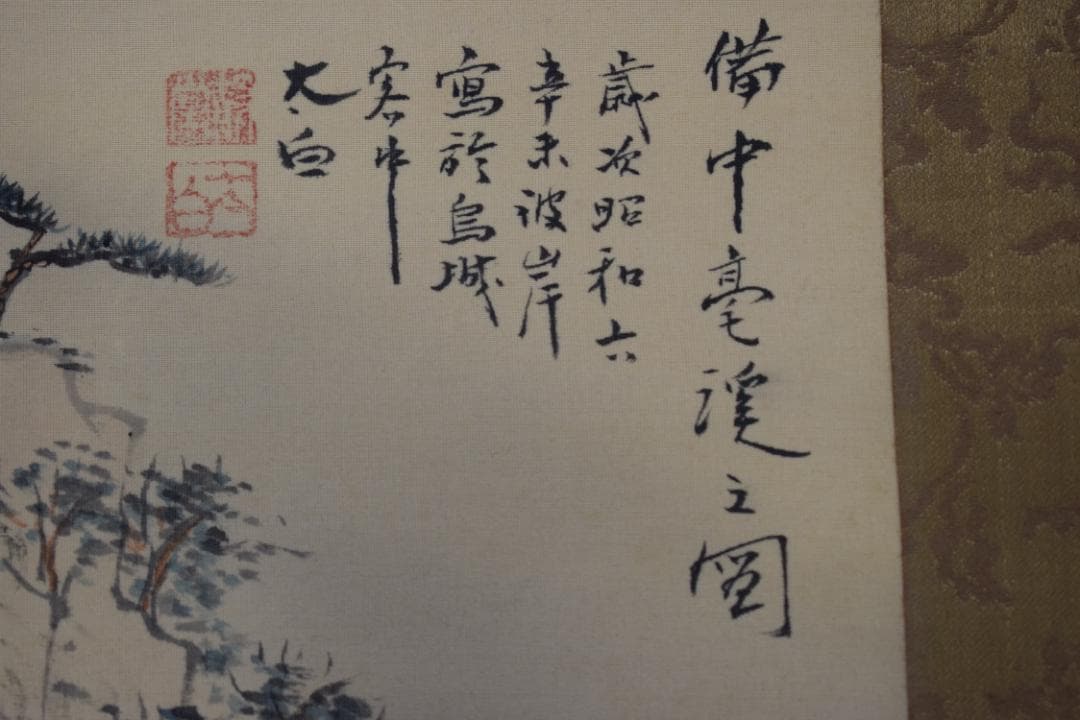 備中豪渓之圖
歳次昭和六
辛未彼岸
寫於烏城
客中
太白